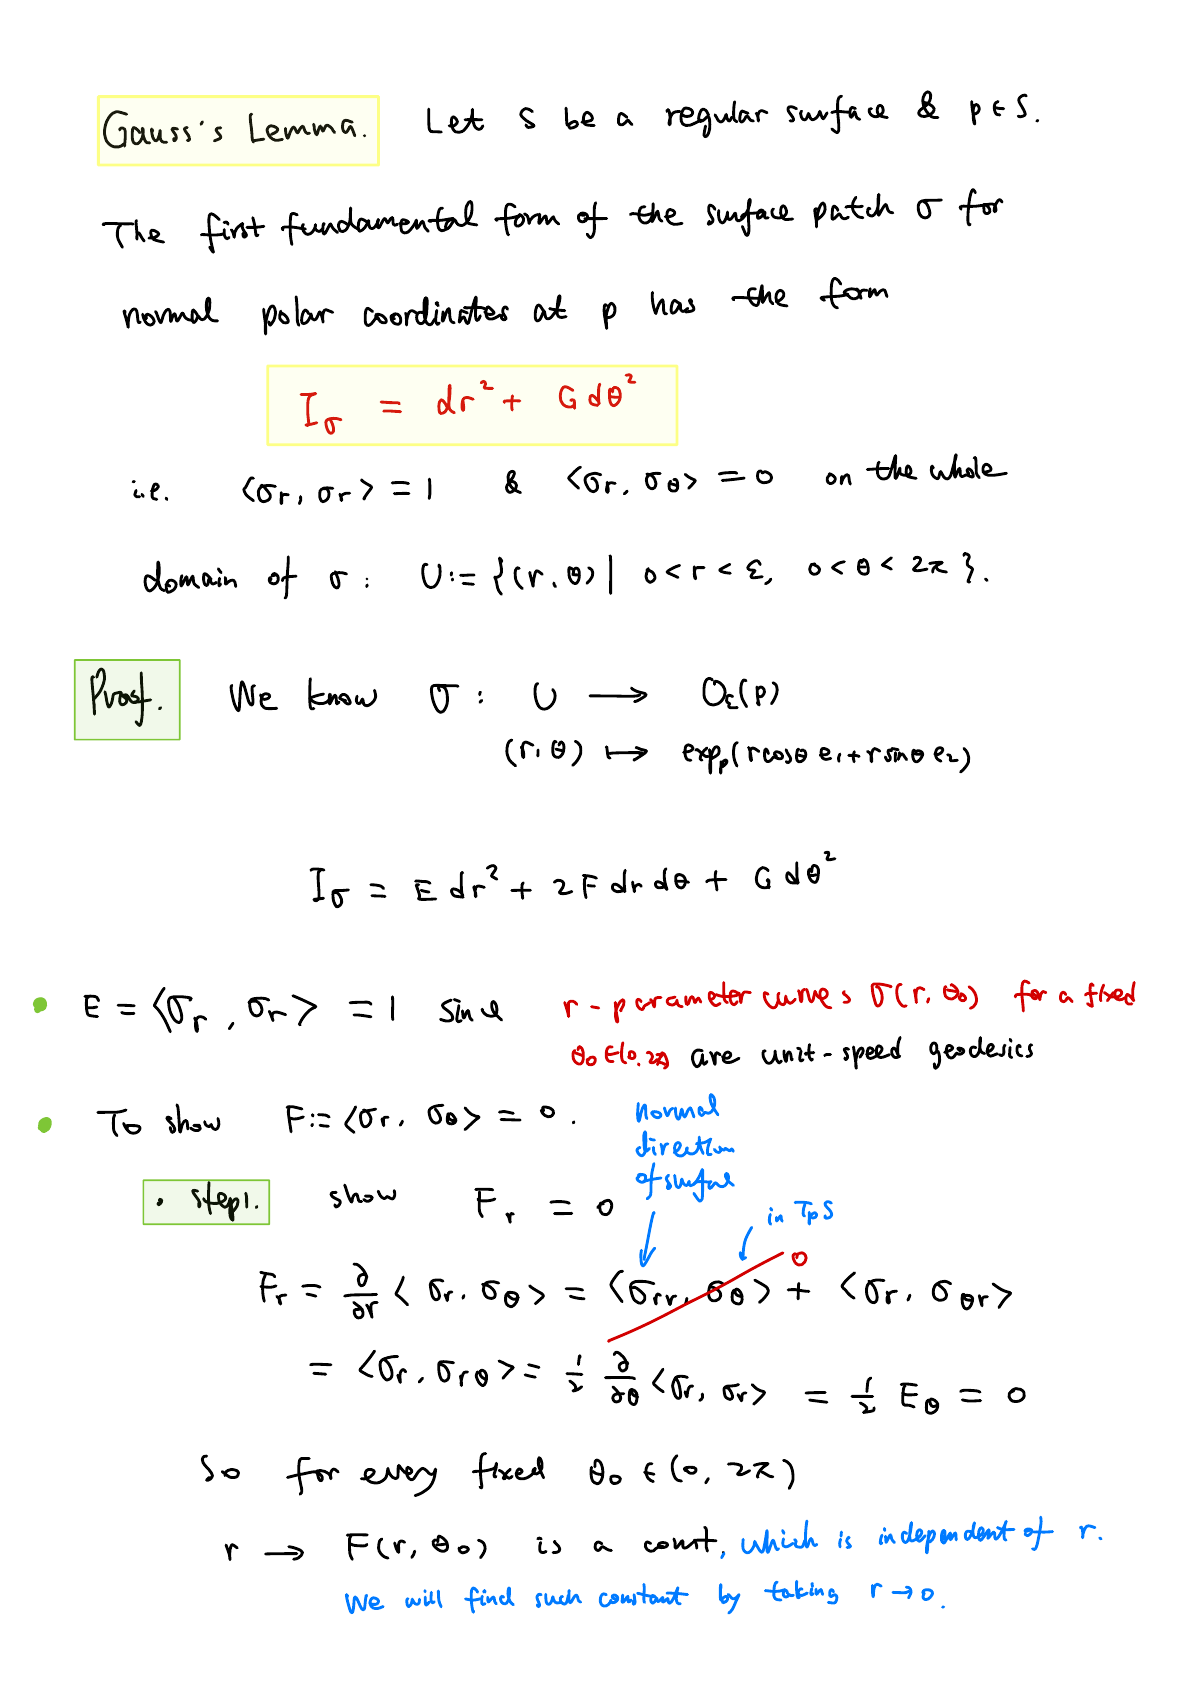 Gauss's Lemma. Let S be a regular surface & p ∈ S.
The first fundamental form of the surface patch σ for
normal polar coordinates at p has the form
I_σ = dr² + G dθ²
i.e. <σ_r, σ_r> = 1 & <σ_r, σ_θ> = 0 on the whole
domain of σ: U := {(r, θ) | 0 < r < ε, 0 < θ < 2π}.
Proof. We know σ: U → O_ε(p)
(r, θ) ↦ exp_p(r cosθ e₁ + r sinθ e₂)
I_σ = E dr² + 2F dr dθ + G dθ²
• E = <σ_r, σ_r> = 1 since r-parameter curves σ(r, θ₀) for a fixed
θ₀ ∈ (0, 2π) are unit-speed geodesics
• To show F := <σ_r, σ_θ> = 0.
normal
direction
of surface
• step 1. show F_r = 0
in T_pS
F_r = ∂/∂r <σ_r, σ_θ> = <σ_rr, σ_θ> 0 + <σ_r, σ_θr>
= <σ_r, σ_rθ> = 1/2 ∂/∂θ <σ_r, σ_r> = 1/2 E_θ = 0
So for every fixed θ₀ ∈ (0, 2π)
r → F(r, θ₀) is a const, which is independent of r.
We will find such constant by taking r → 0.